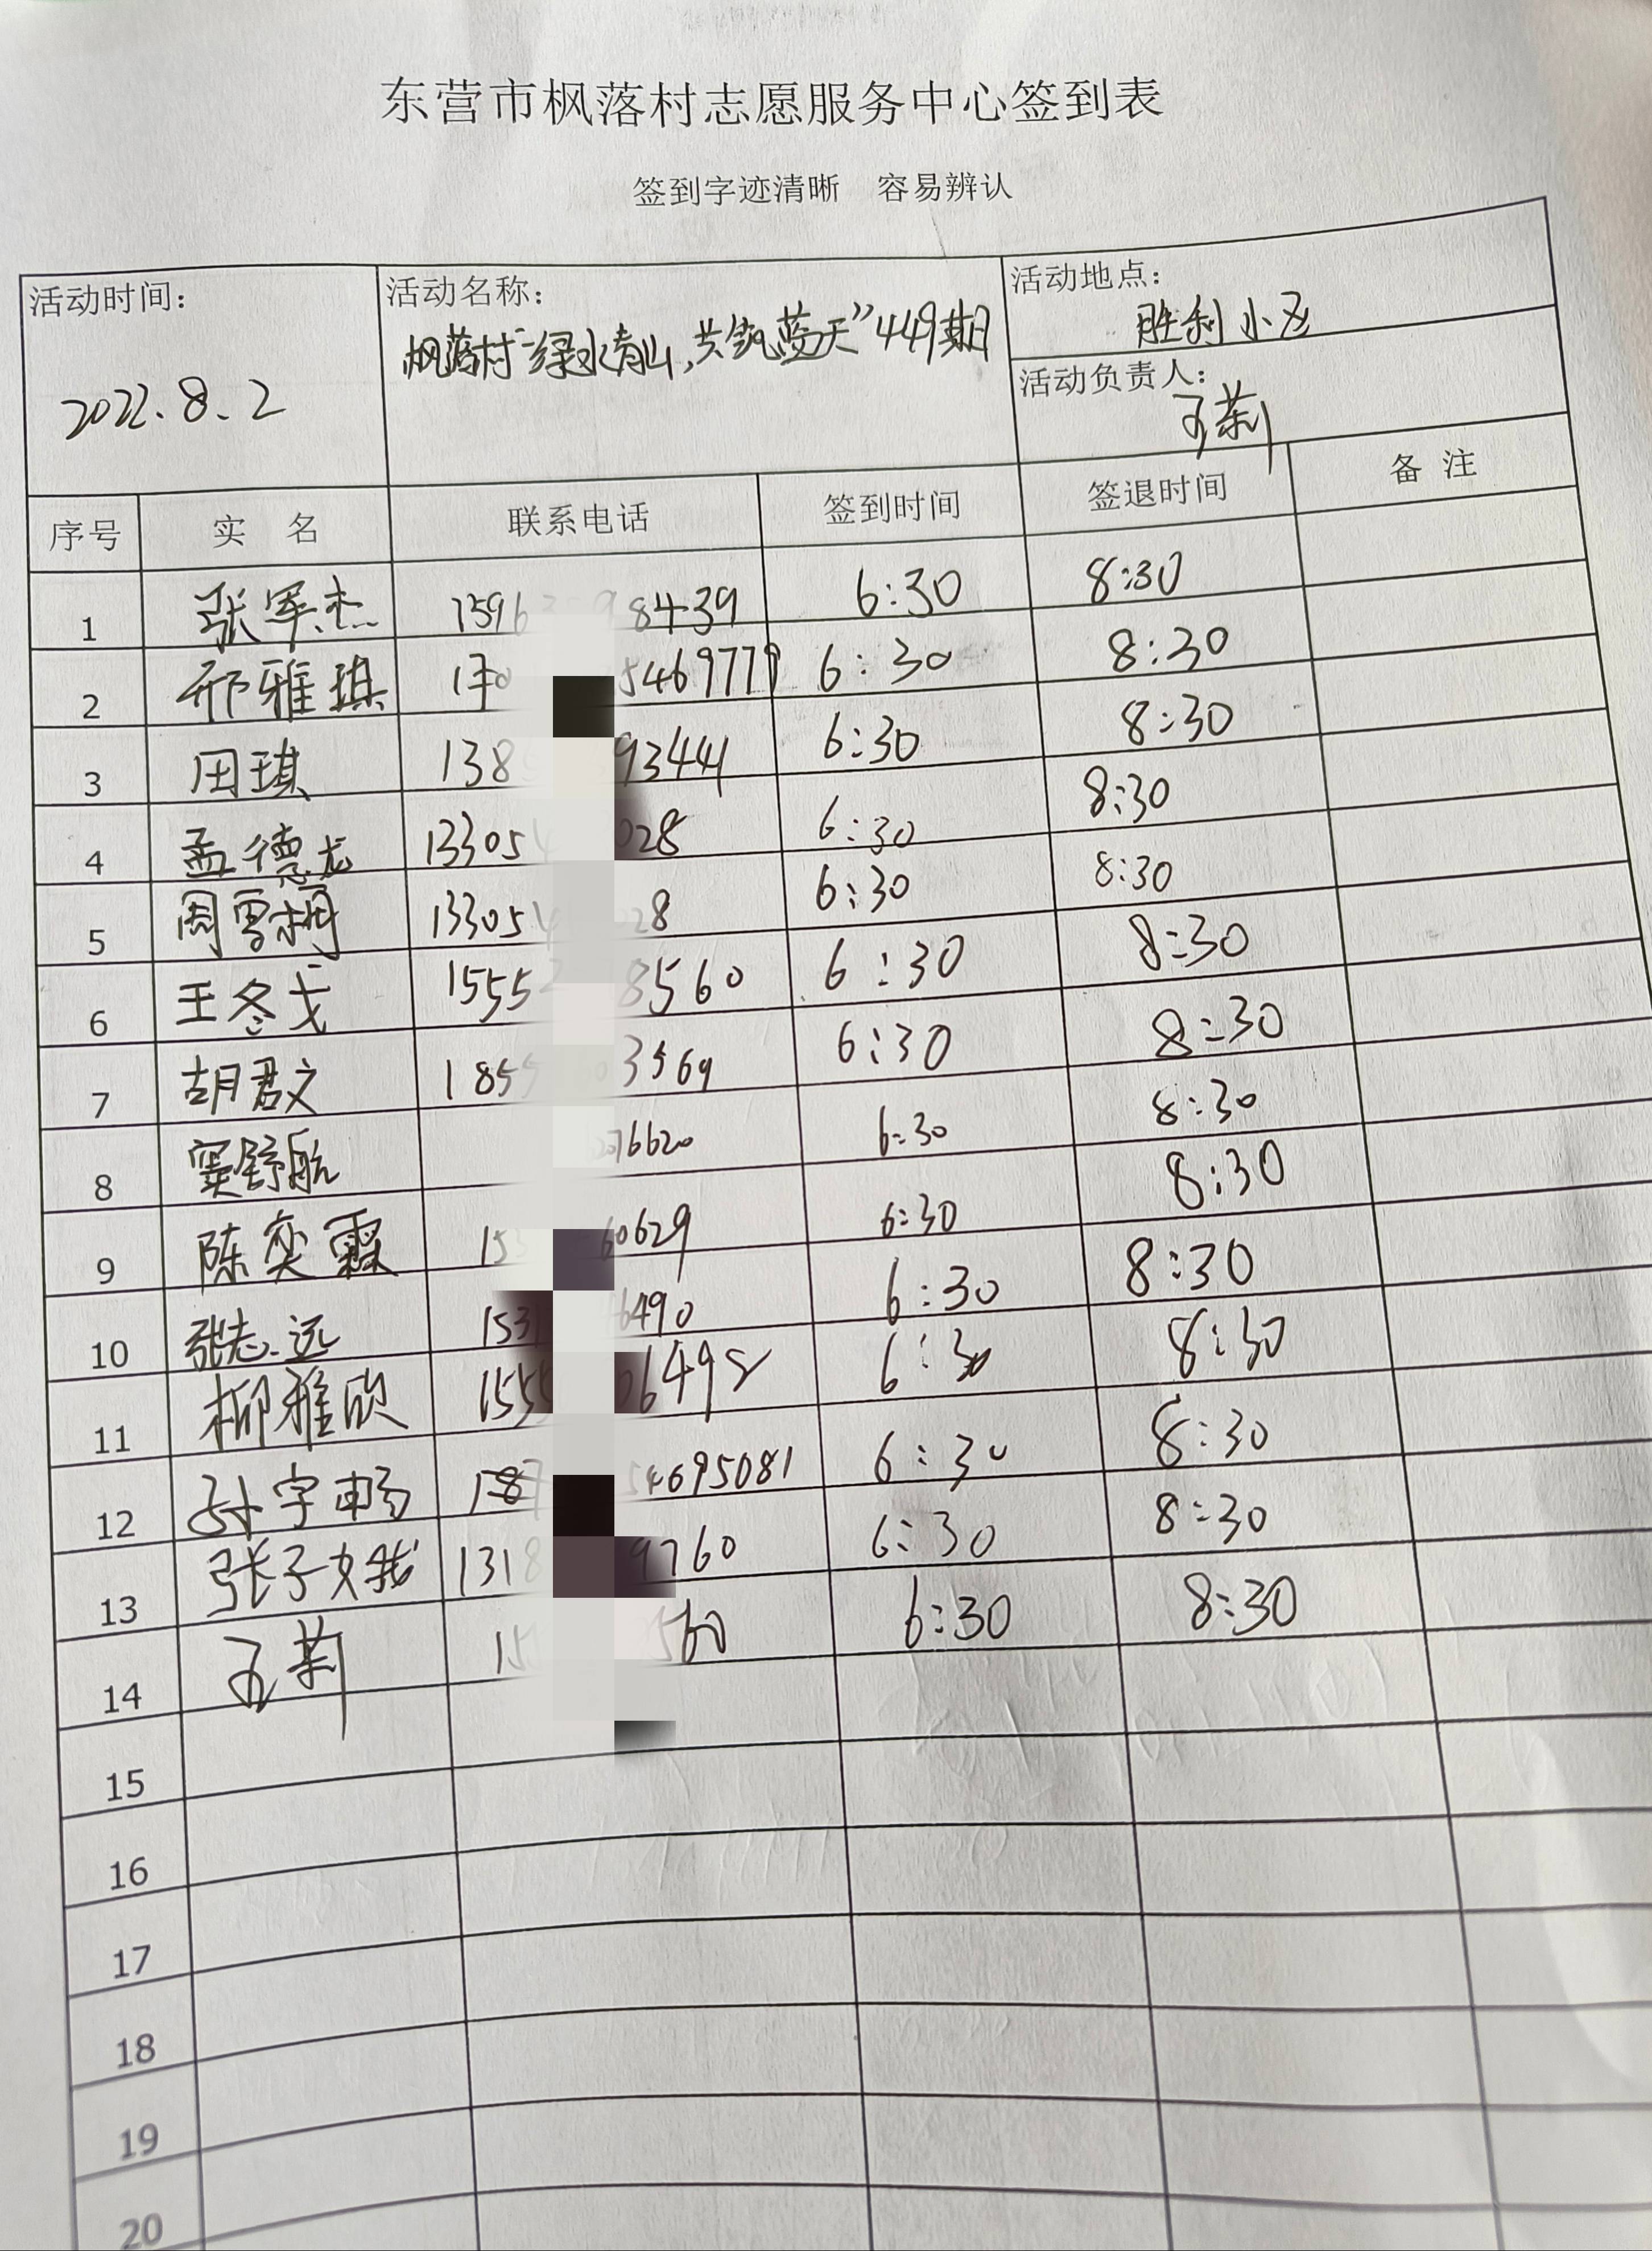 东营市枫落村志愿服务中心签到表
签到字迹清晰 容易辨认
活动时间：
2022.8.2
活动名称：
枫落村“绿水青山，共筑蓝天”449期
活动地点：
胜利小区
活动负责人：
王莉
序号 实 名 联系电话 签到时间 签退时间 备 注
1 张军杰 1596 8439 6:30 8:30
2 邢雅琪 5469779 6:30 8:30
3 田琪 138 93441 6:30 8:30
4 孟德龙 13305 028 6:30 8:30
5 周雪 13305 28 6:30 8:30
6 王冬戈 1555 8560 6:30 8:30
7 胡君文 185 3569 6:30 8:30
8 窦舒航 76620 6:30 8:30
9 陈奕霖 15 60629 6:30 8:30
10 张志远 153 6490 6:30 8:30
11 柳雅欣 155 649 6:30 8:30
12 孙宇畅 54695081 6:30 8:30
13 张子娥 1318 9760 6:30 8:30
14 王莉 15 560 6:30 8:30
15
16
17
18
19
20